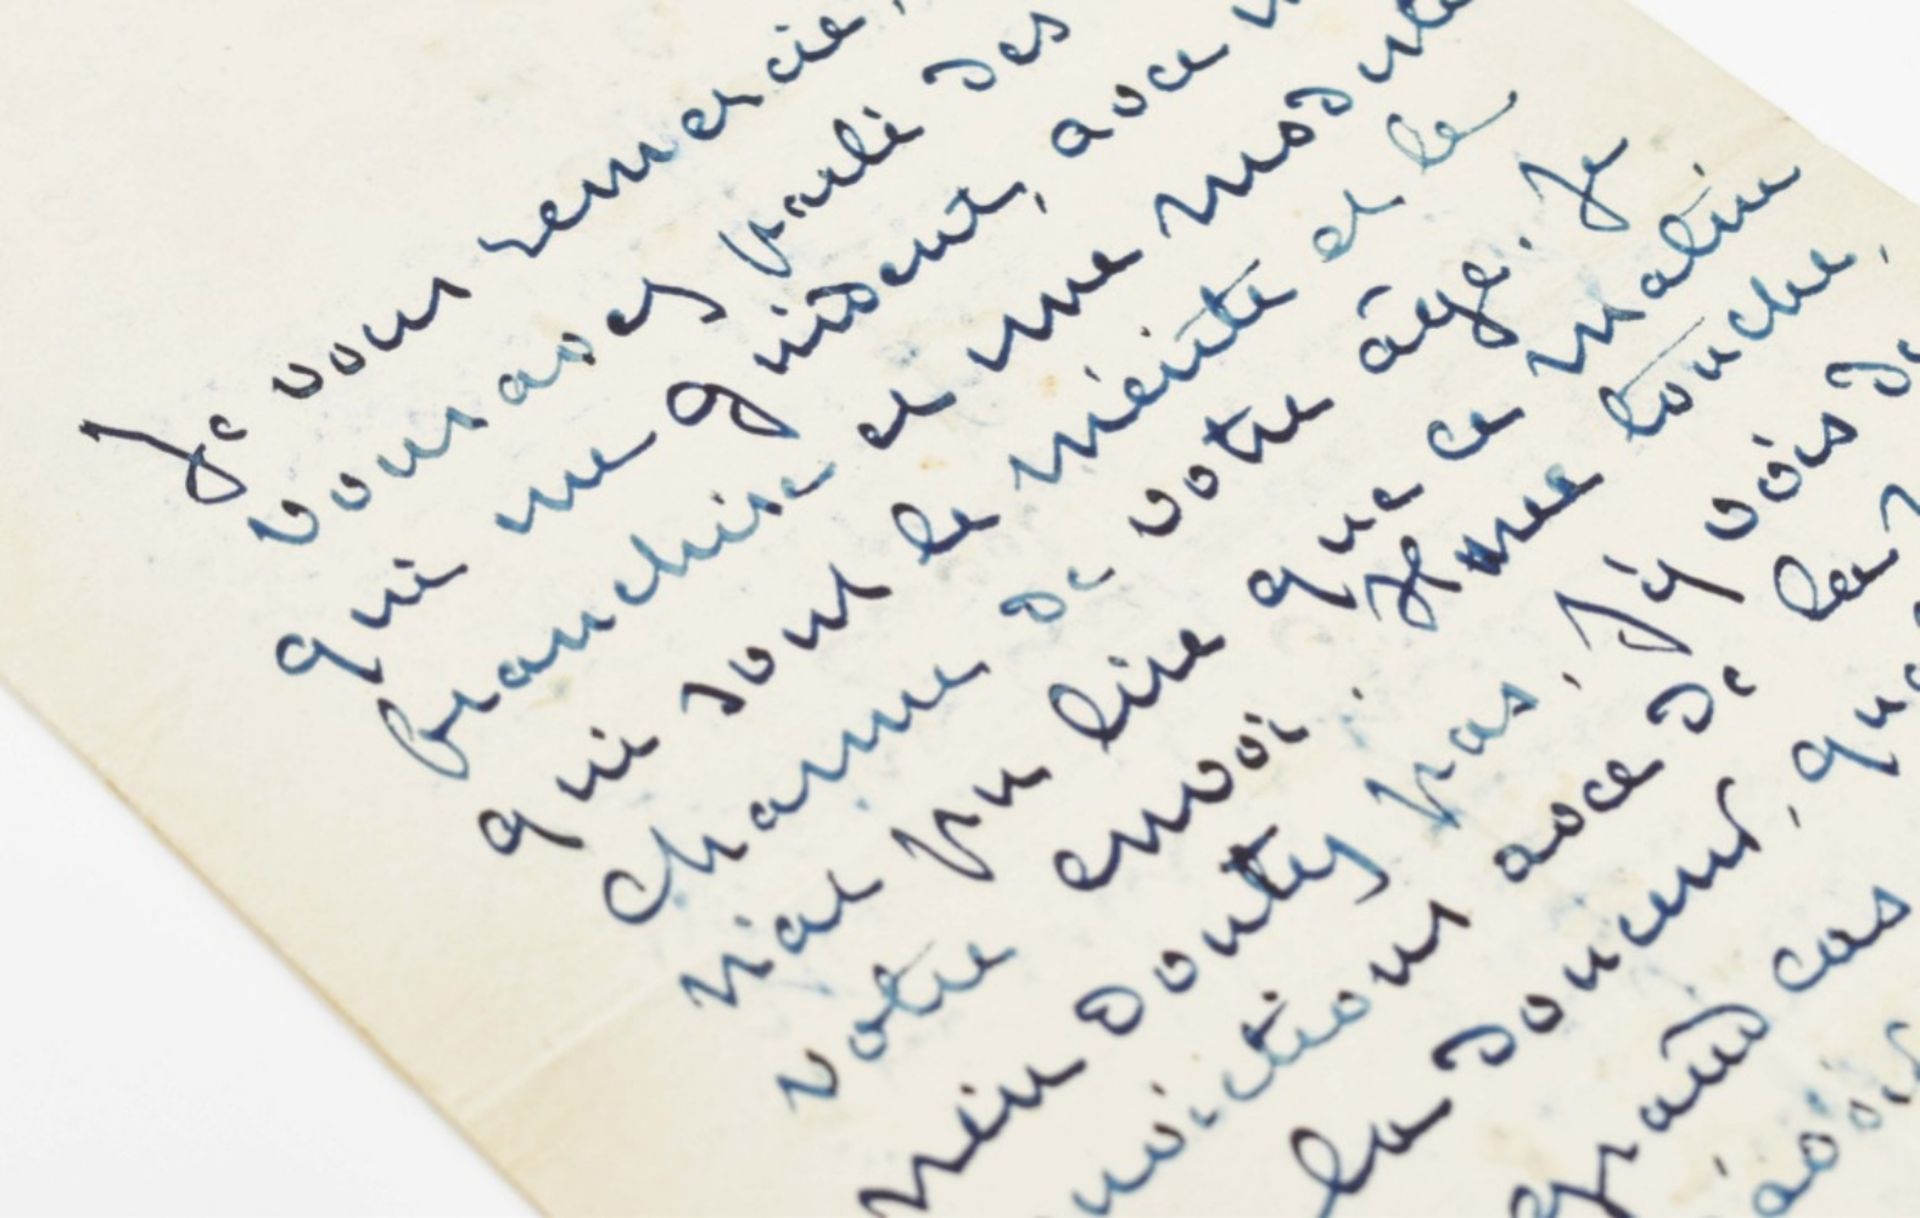 Je vous remercie,
vous avez parlé des
qui me grisent, avec
franchise et une
qui sont le mérite et le
charme de votre âge. Je
n'ai pu lire que ce matin
votre envoi. Il me touche,
n'en doutez pas. J'y vois de
avec de la
la douceur, que
grand cas